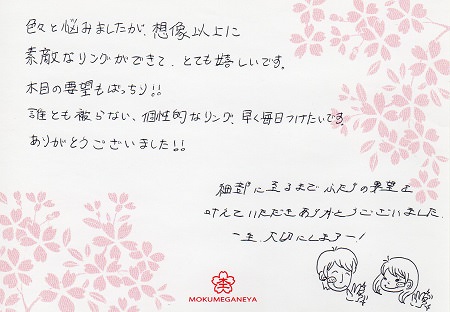 色々と悩みましたが、想像以上に
素敵なリングができて、とても嬉しいです。
木目の要望もばっちり!!
誰とも被らない、個性的なリング、早く毎日つけたいです。
ありがとうございました!!
細部に至るまでふたりの要望を
叶えていただきありがとうございました。
一生、大切にしまーす!
MOKUMEGANEYA